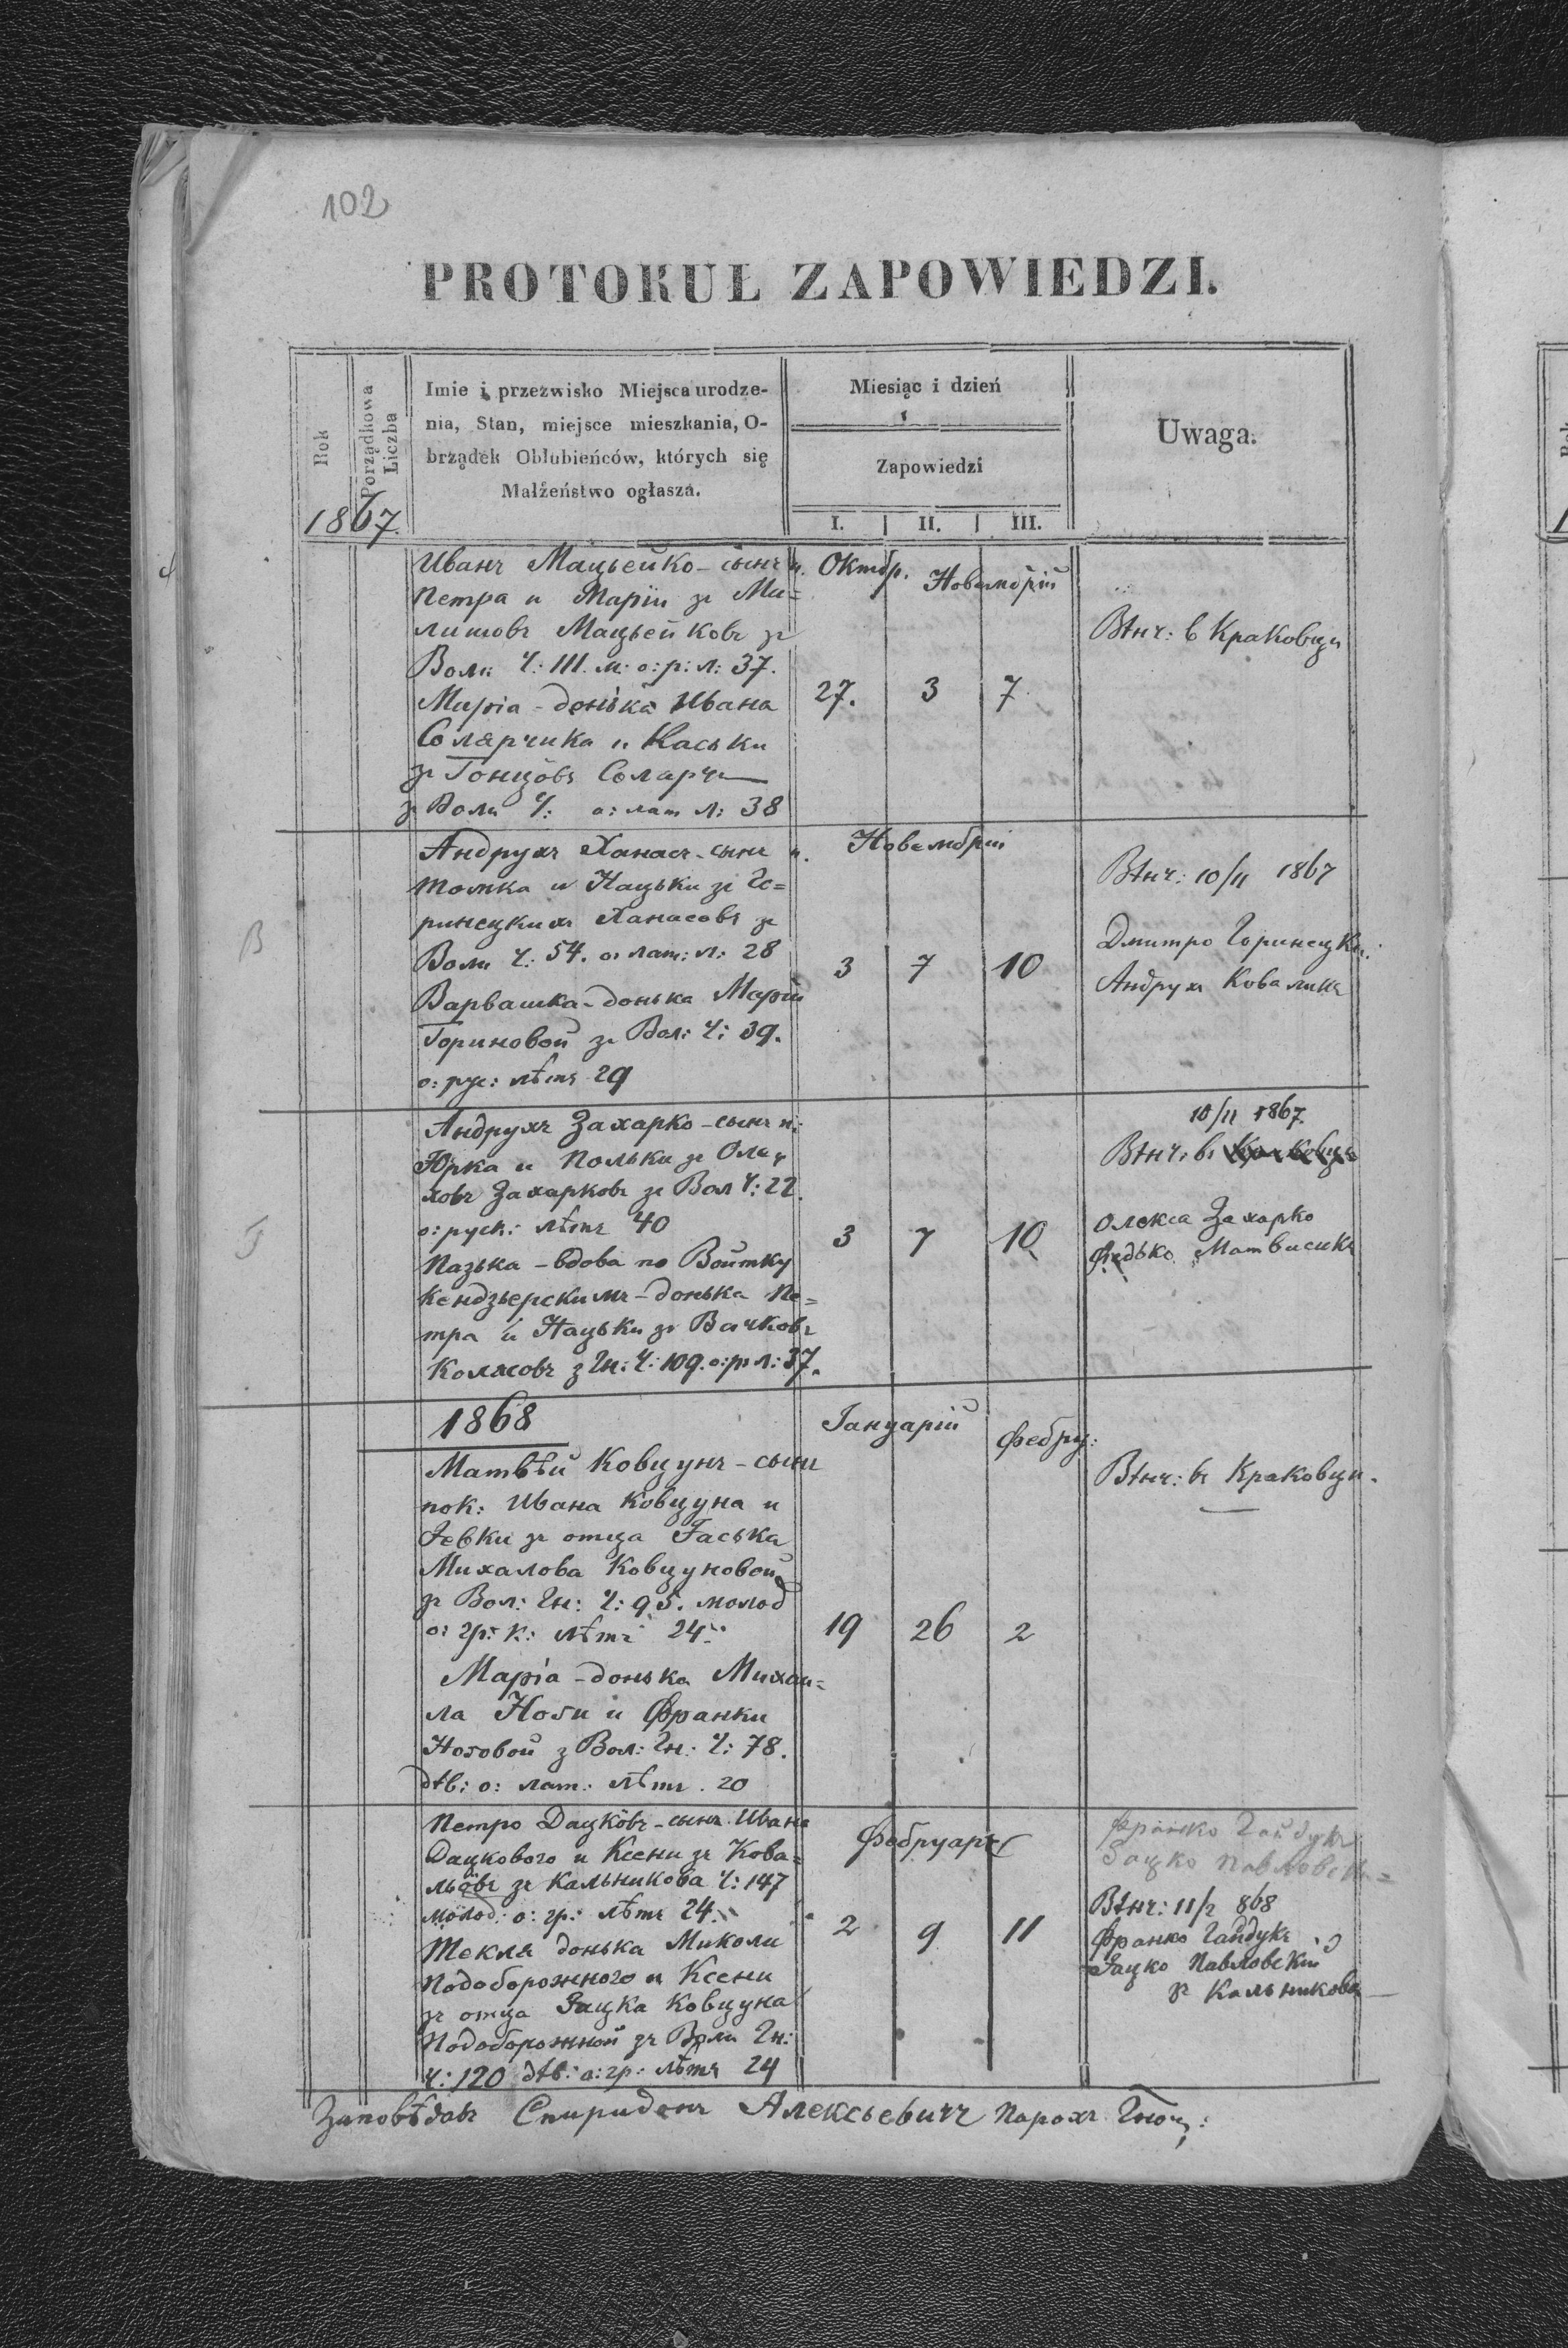 102
PROTOKUŁ ZAPOWIEDZI.
Rok
Porządkowa
Liczba
Imie i przezwisko Miejsca urodze-
nia, Stan, miejsce mieszkania, O-
brządek Obłubieńców, których się
Małżeństwo ogłasza.
Miesiąc i dzień
Zapowiedzi
I. II. III.
Uwaga.
1867.
Иванъ Мацьейко - сынъ п.
Петра и Маріи зъ Ми=
Мацьейковъ зъ
Воли Ч: 111. м: о: р: л: 37.
Марія - донька Ивана
Солярчика и Каськи
зъ Гонцôвъ Солярч
з Воли Ч: о: лат л: 38
Октбр. Новембрій
27. 3 7
Вѣнч: в Краковци
Андрухъ Ханасъ - сынъ п.
Томка и Нацьки зъ Го=
ринецкихъ Ханасовъ зъ
Воли Ч: 54. о: лат: л: 28
Варвашка - донька Маріи
Гориновой зъ Вол: Ч: 39.
о: рус: лѣтъ 29
Новембрій
3 7 10
Вѣнч: 10/11 1867
Дмитро Горинецкі.
Андрух Коваликъ
В
Андрухъ Захарко - сынъ п:
Юрка и Польки зъ
Захарковъ зъ Вол Ч: 22.
о: руск: лѣтъ 40
Пазька - вдова по Войтку
Кендзьерскимъ - донька Пе=
тра и Нацьки зъ Вачковъ
з Гн: Ч: 109. о: р: л: 37.
3 7 10
10/11 1867.
Вѣнч: въ Краковци
Олекса Захарко
Федько Матвисикъ
1868
Матвѣй Ковцунъ - сынъ
пок: Ивана Ковцуна и
Евки зъ отца Гаська
Михалова Ковцуновой
зъ Вол: Гн: Ч: 95. молод
о: гр: к: лѣтъ 24.
Марія - донька Михаи=
ла Ноги и Франки
Ноговой з Вол: Гн: Ч: 78.
дѣв: о: лат: лѣтъ. 20
Іануарій Фебру:
19 26 2
Вѣнч: въ Краковци.
Петро Дацкôвъ - сынъ Ивана
Дацкового и Ксени зъ Кова=
льôвъ зъ Кальникова Ч: 147
молод: о: гр: лѣтъ 24.
Текля донька Миколи
Подоборожного и Ксени
зъ отца Яцка Ковцуна
Подоборожной зъ Воли Гн:
Ч: 120 дѣв: о: гр: лѣтъ 24
Фебруарі
2 9 11
Франко Гайдукъ
Яцко Павловскі=
Вѣнч: 11/2 868
Франко Гайдукъ
Яцко Павловскій
зъ Кальникова
Заповѣдавъ Спиридонъ Алексѣевичъ Парохъ Гноц: